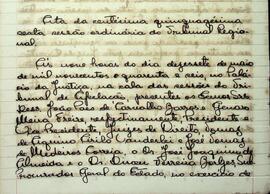 Acta da centesima quinquagesima
sexta sessão ordinaria do Tribunal Regio-
nal.
Ás nove horas do dia dezesete de maio
de mil novecentos e quarenta e seis, no Palá-
cio da Justiça, na sala das sessões do Tri-
bunal de Apelação, presentes os Exmos Srs.
Des. João Paes de Carvalho Barros e Genaro
Meira Freire, respectivamente, Presidente e
Vice-Presidente, Juizes de Direito Tomas
de Aquino Cirilo Wanderlei e José Tomas
de Medeiros Correia, o dr. José Joaquim de
Almeida e o Dr. Dirceu Ferreira Borges, Sub-
Procurador Geral do Estado, no exercicio de